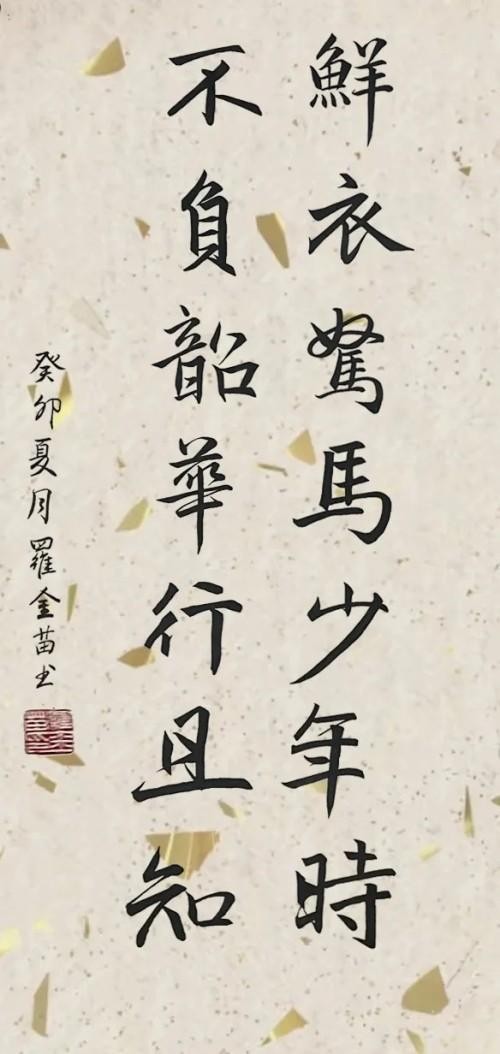 鮮衣駑馬少年時
不負韶華行且知
癸卯夏月羅金苗书